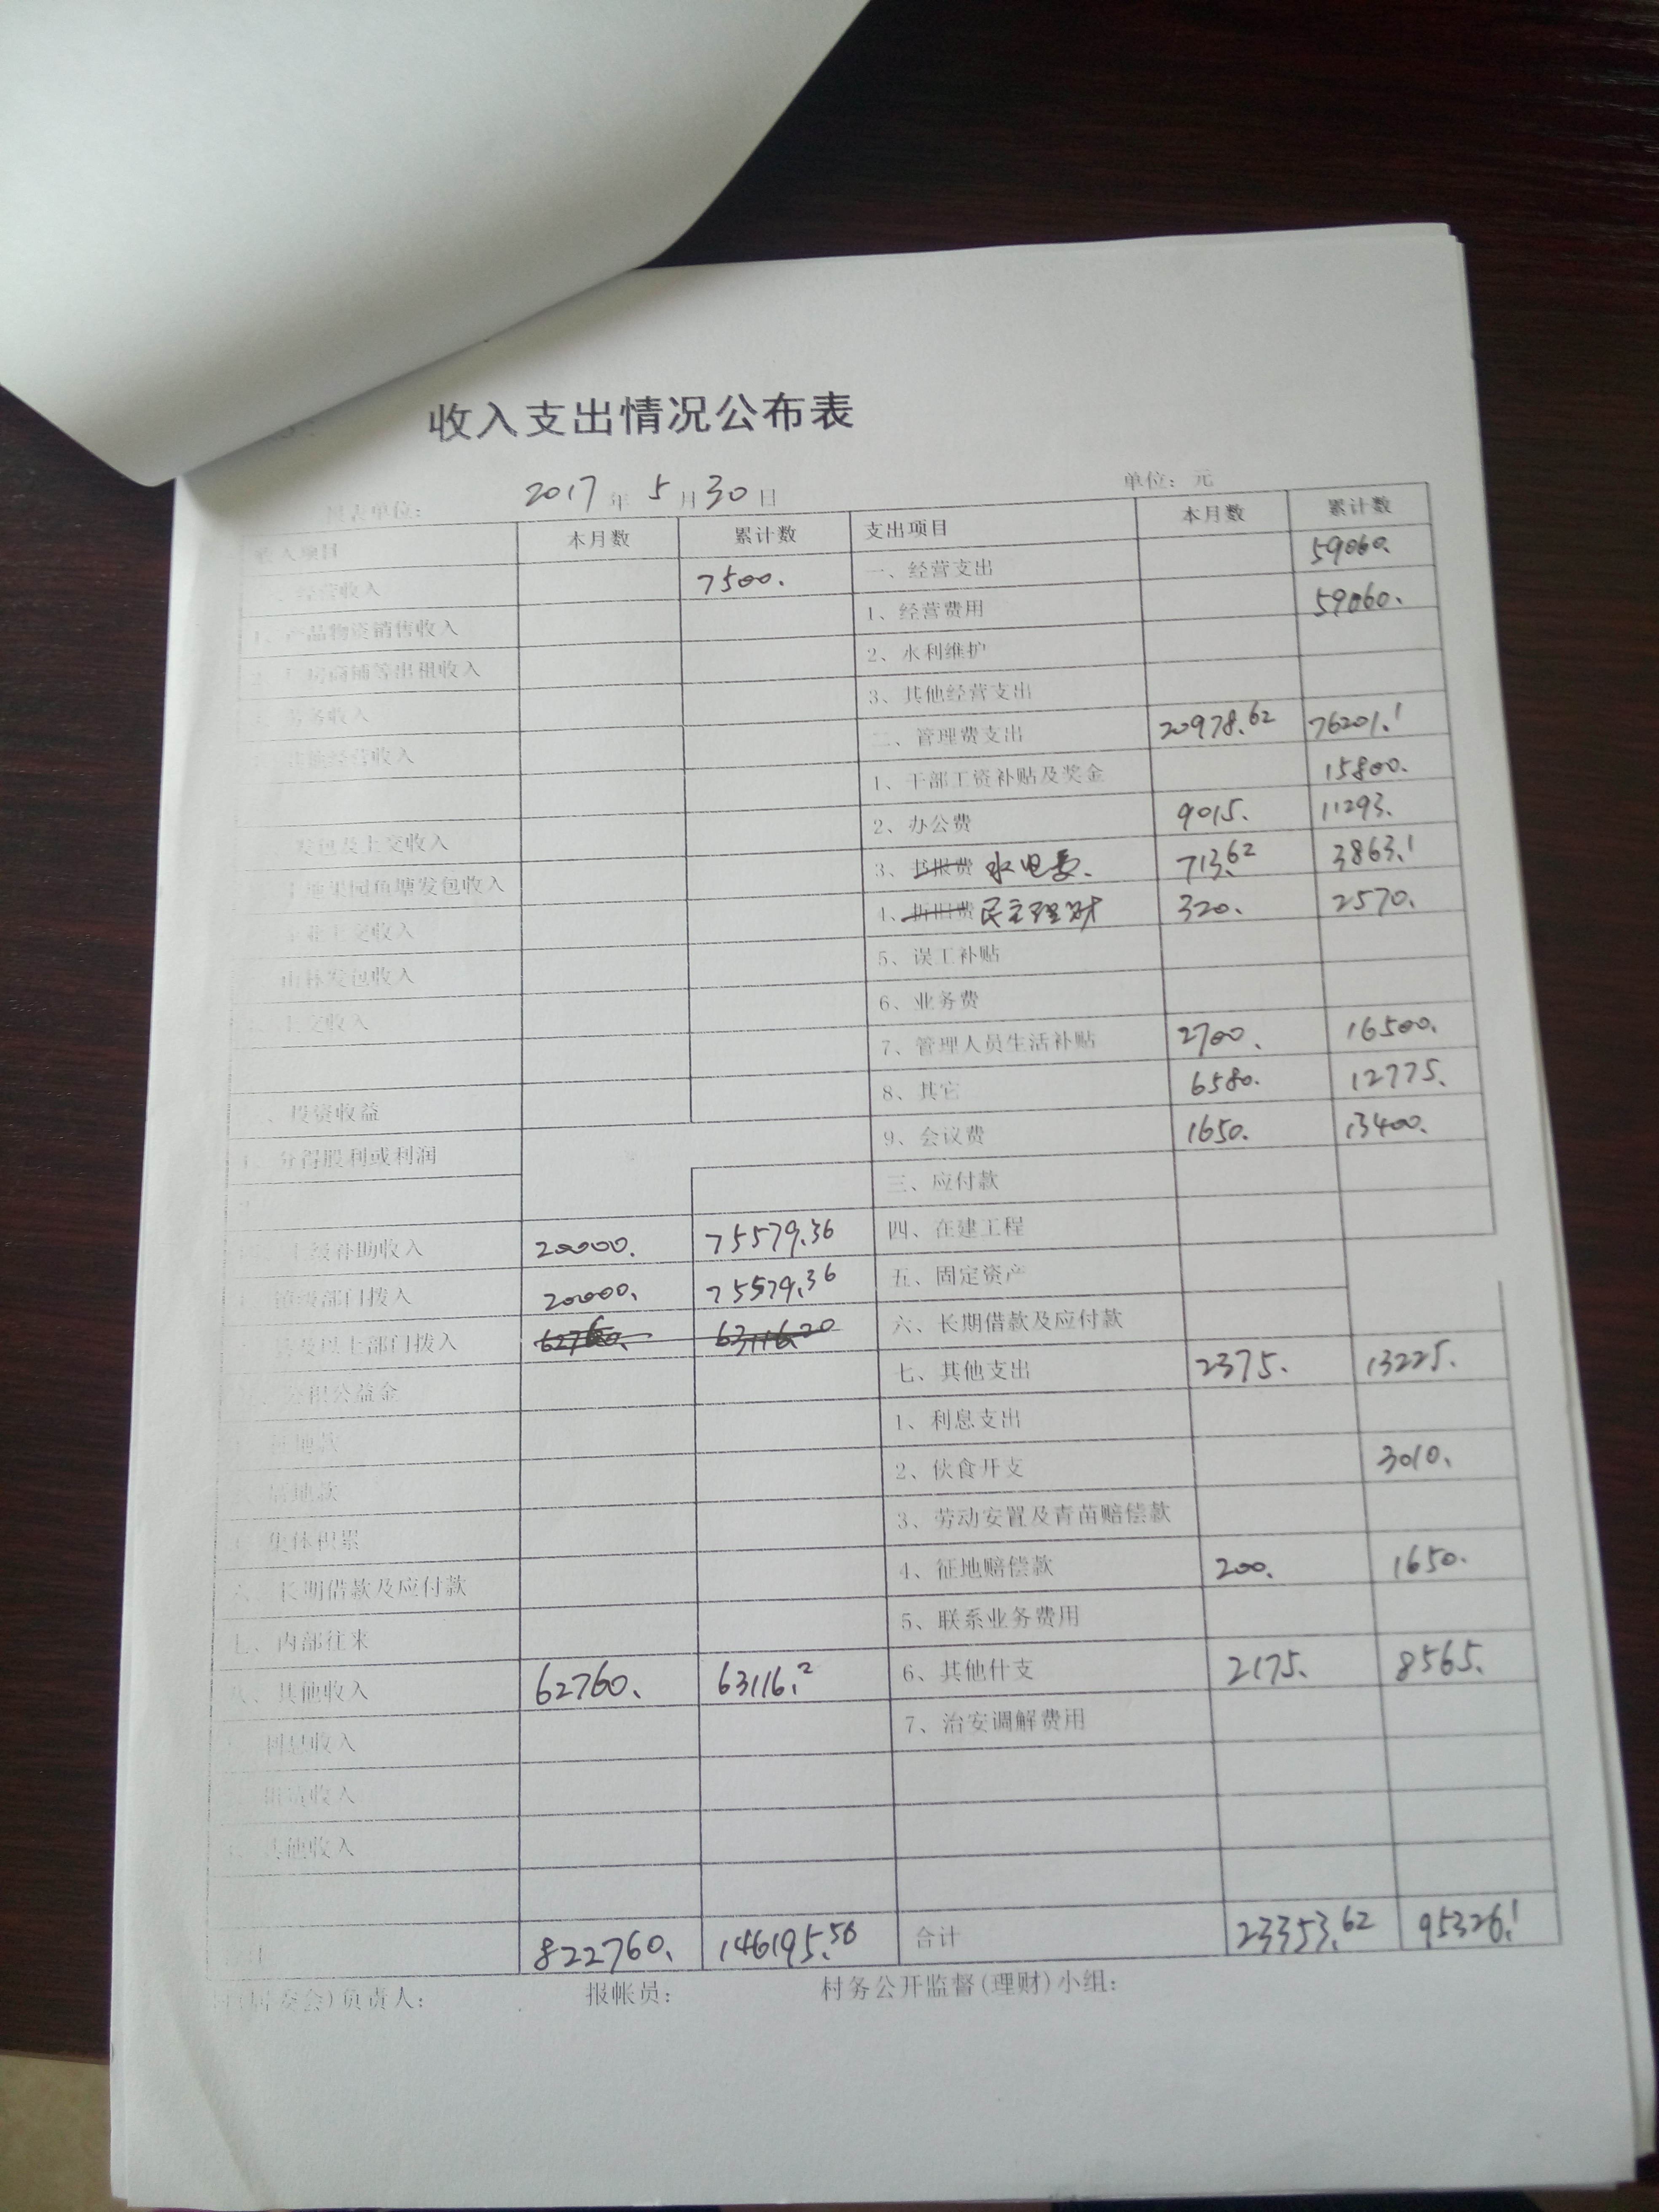 收入支出情况公布表
2017年5月30日 单位：元
本月数 累计数 支出项目 本月数 累计数
经营收入 7500. 一、经营支出 59060.
产品物资销售收入 1、经营费用 59060.
商铺等出租收入 2、水利维护
劳务收入 3、其他经营支出
其他经营收入 二、管理费支出 20978.62 76201.1
1、干部工资补贴及奖金 15800.
发包及上交收入 2、办公费 9015. 11293.
土地果园鱼塘发包收入 3、书报费 水电费. 713.62 3863.1
上交收入 4、折旧费 民主理财 320. 2570.
山林发包收入 5、误工补贴
上交收入 6、业务费
7、管理人员生活补贴 2700. 16500.
、投资收益 8、其它 6580. 12775.
1、分得股利或利润 9、会议费 1650. 13400.
三、应付款
上级补助收入 20000. 75579.36 四、在建工程
镇级部门拨入 20000. 75579.36 五、固定资产
及以上部门拨入 62760. 63116.20 六、长期借款及应付款
公积公益金 七、其他支出 2375. 13225.
征地款 1、利息支出
地款 2、伙食开支 3010.
集体积累 3、劳动安置及青苗赔偿款
六、长期借款及应付款 4、征地赔偿款 200. 1650.
七、内部往来 5、联系业务费用
八、其他收入 62760. 63116.2 6、其他什支 2175. 8565.
利息收入 7、治安调解费用
收入
其他收入
822760. 146195.56 合计 23353.62 95326.1
(居委会)负责人： 报帐员： 村务公开监督(理财)小组：